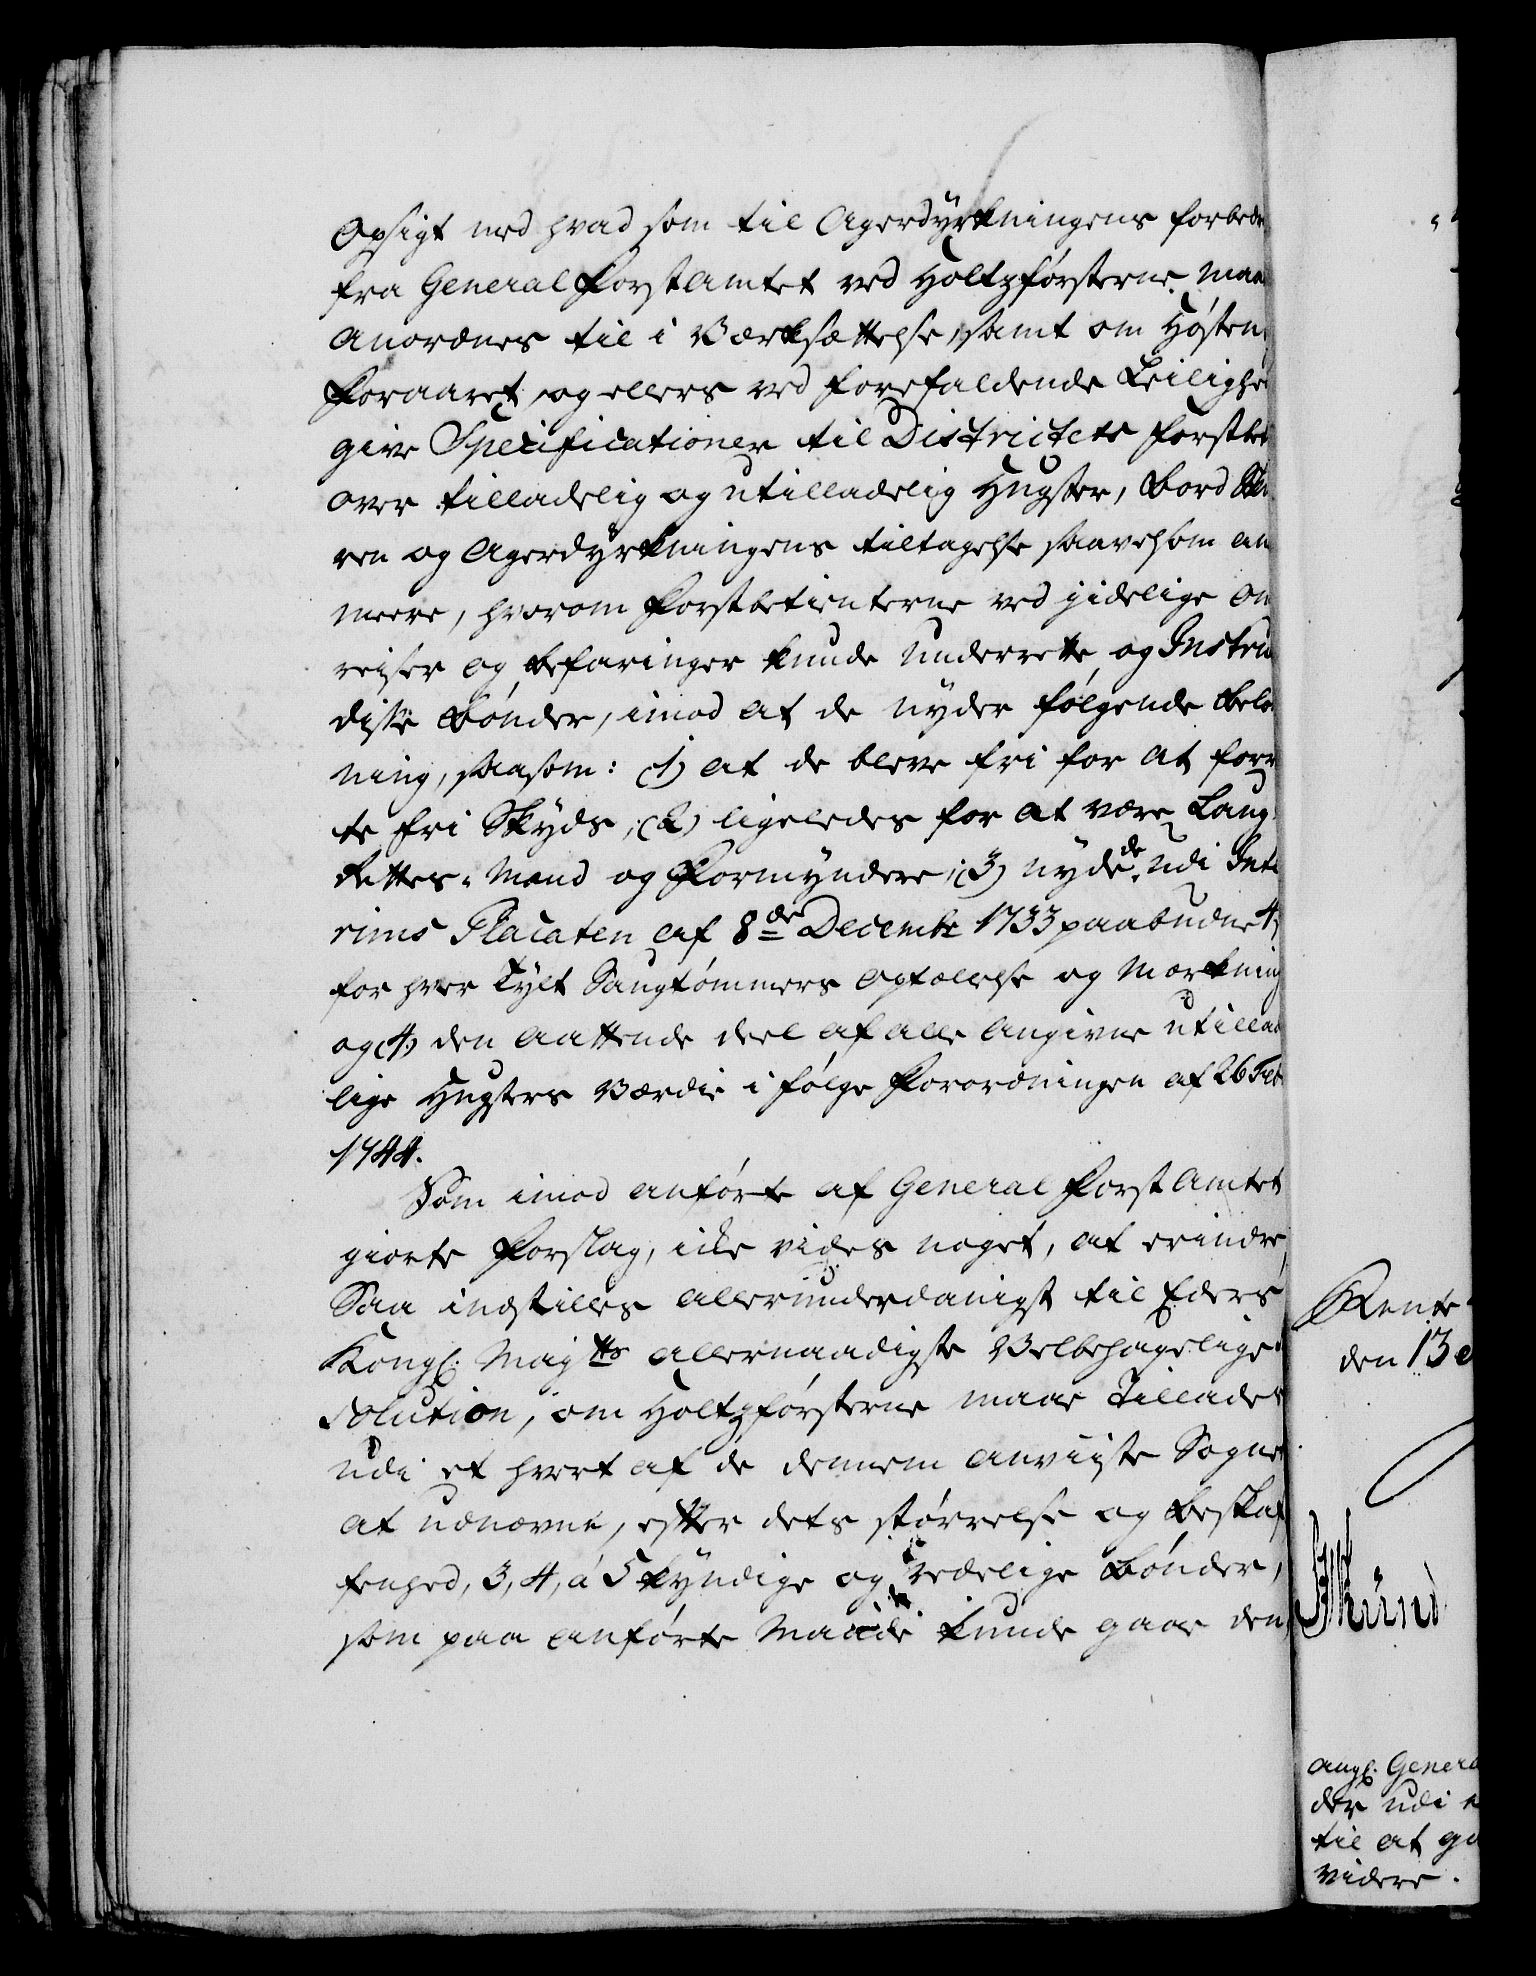 Opsigt med hvad som til Agerdyrkningens forbed
fra General Forst Amtet ved Holtzførsterne maa
anordnes til i Værksættelse, samt om Høsten,
Foraaret og ellers ved forefaldende Leilighe
give Specificationer til Districtets Forstbe
over tilladelig og utilladelig Hugster, Bord Skiæ
ren og Agerdyrkningens tiltagelse saavelsom an
meere, hvorom Forstbetienterne ved jidelige Om
reiser og befaringer kunde underrette og Instru
disse Bønder, imod at de nyder følgende Belø
ning, saasom: (1) at de bleve fri for at forre
te fri Skyds, (2) ligeledes for at være Laug-
Rettes-Mænd og Formyndere, (3) nyde de udi Inte
rims Placaten af 8de Decembr 1733 paabudne 4
for hver Tylt Saugtømmers optællelse og Mærkning
og (4) den aattende deel af alle angivne utillad
lige Hugsters Værdie i følge Forordningen af 26 Feb
1744.
Som imod anførte af General Forst Amtet
giorte Forslag, icke vides noget, at erindre,
Saa indstilles allerunderdanigst til Eders
Kongl. Maytts allernaadigste Velbehagelige
solution, om Holtzførsterne maae Tillades
udi et hvert af de dennem anviiste Sogne
at udnævne, efter dets størrelse og beskaf
fenhed, 3, 4, à 5 kyndige og redelige Bønder,
som paa anførte Maade kunde gaae den
Rente
den 13
ang. Genera
der udi
til at
videre.